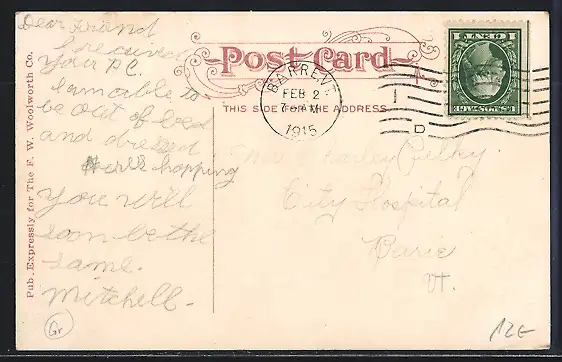 Dear Friend
I received
Your P.C.
I am able to
be out of bed
and dressed
Here's hopping
you will
soon be the
same.
Mitchell.
Gr
Pub. Expressly for The F. W. Woolworth Co.
Post Card
THIS SIDE FOR THE ADDRESS
BARRE VT.
FEB 2
7 PM
1915
D
U.S. POSTAGE
1 CENT 1
Mr. Charley
City Hospital
Barie
Vt.
12E